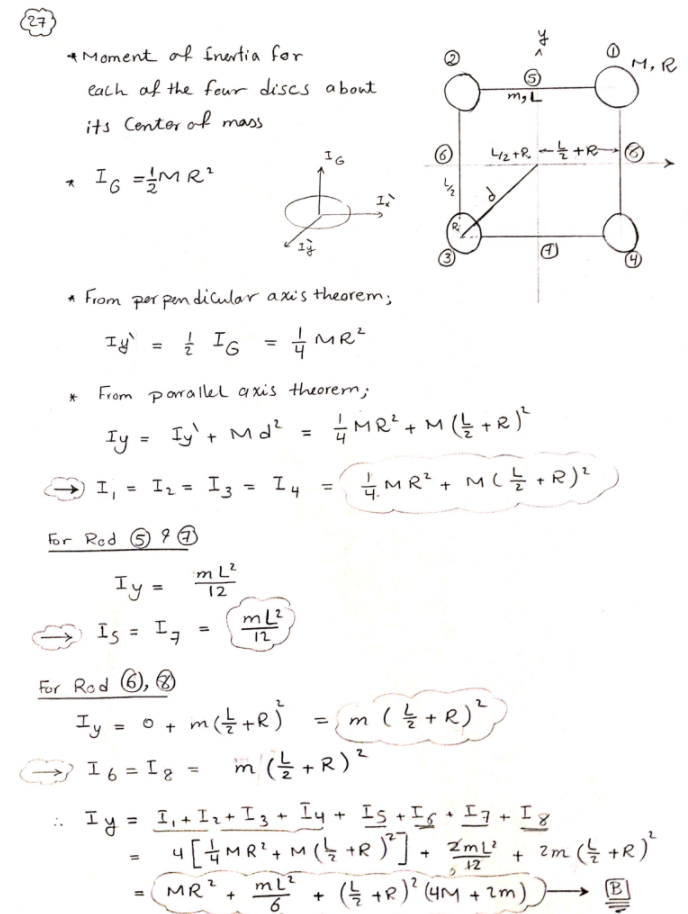 27
* Moment of Inertia for
each of the four discs about
its center of mass
* I_G = 1/2 M R²
I_G
I_x`
I_y`
y
② ① M, R
⑤
m, L
⑥ L/2+R ← L/2 + R → ⑧
L/2
d
R
③ ⑦ ④
* From perpendicular axis theorem;
I_y` = 1/2 I_G = 1/4 MR²
* From parallel axis theorem;
I_y = I_y` + Md² = 1/4 MR² + M (L/2 + R)²
→ I₁ = I₂ = I₃ = I₄ = 1/4 MR² + M ( L/2 + R)²
For Rod ⑤ & ⑦
I_y = mL²/12
→ I₅ = I₇ = mL²/12
For Rod ⑥, ⑧
I_y = 0 + m(L/2 + R)² = m ( L/2 + R)²
→ I₆ = I₈ = m (L/2 + R)²
∴ I_y = I₁ + I₂ + I₃ + I₄ + I₅ + I₆ + I₇ + I₈
= 4 [1/4 MR² + M (L/2 + R)²] + 2mL²/12 + 2m (L/2 + R)²
= MR² + mL²/6 + (L/2 + R)² (4M + 2m) → B